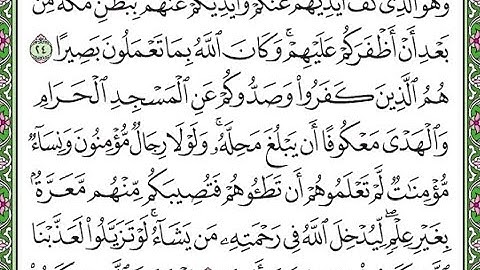 وَهُوَ ٱلَّذِى كَفَّ أَيْدِيَهُمْ عَنكُمْ وَأَيْدِيَكُمْ عَنْهُم بِبَطْنِ مَكَّةَ مِنۢ
بَعْدِ أَنْ أَظْفَرَكُمْ عَلَيْهِمْ ۚ وَكَانَ ٱللَّهُ بِمَا تَعْمَلُونَ بَصِيرًا ٢٤
هُمُ ٱلَّذِينَ كَفَرُوا۟ وَصَدُّوكُمْ عَنِ ٱلْمَسْجِدِ ٱلْحَرَامِ
وَٱلْهَدْىَ مَعْكُوفًا أَن يَبْلُغَ مَحِلَّهُۥ ۚ وَلَوْلَا رِجَالٌ مُّؤْمِنُونَ وَنِسَآءٌ
مُّؤْمِنَـٰتٌ لَّمْ تَعْلَمُوهُمْ أَن تَطَـُٔوهُمْ فَتُصِيبَكُم مِّنْهُم مَّعَرَّةٌۢ
بِغَيْرِ عِلْمٍ ۖ لِّيُدْخِلَ ٱللَّهُ فِى رَحْمَتِهِۦ مَن يَشَآءُ ۚ لَوْ تَزَيَّلُوا۟ لَعَذَّبْنَا